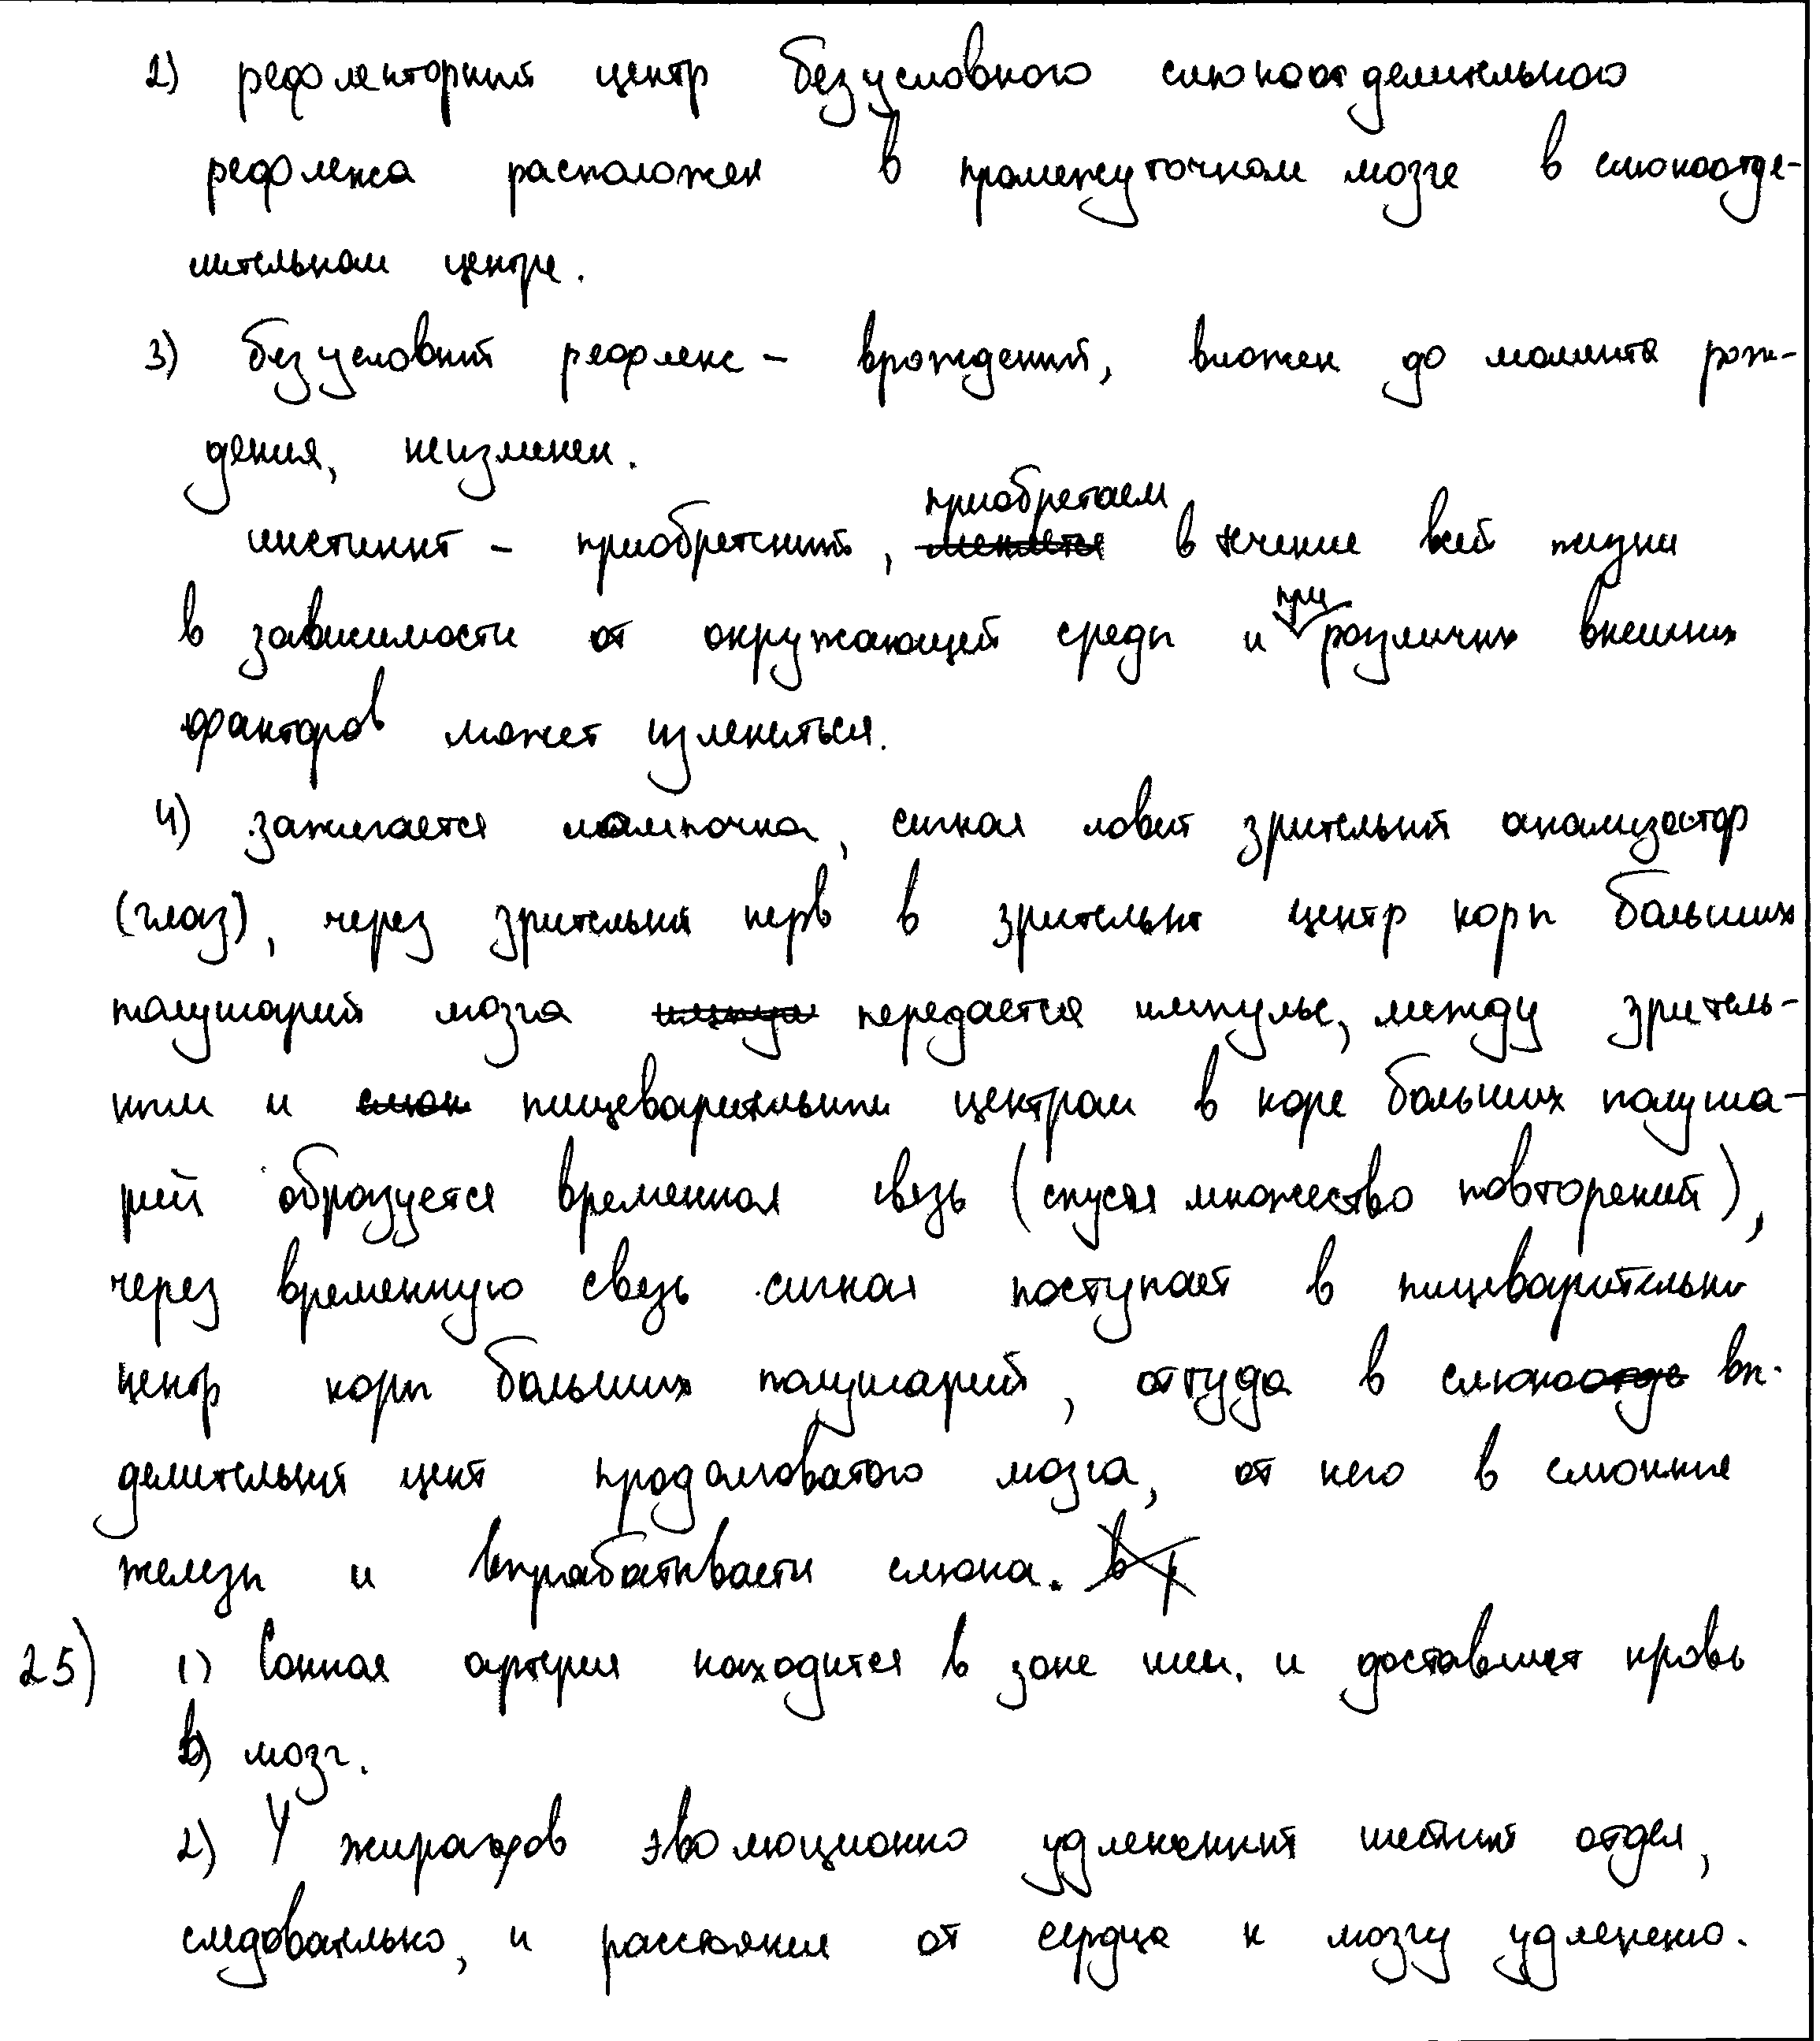 2) рефлекторный центр безусловного слюноотделительного
рефлекса расположен в промежуточном мозге в слюноотде-
лительном центре.
3) безусловный рефлекс – врожденный, вложен до момента рож-
дения, неизменен.
приобретаем
инстинкт – приобретенный, меняется в течение всей жизни
при
в зависимости от окружающей среды и различных внешних
факторов может измениться.
4) зажигается лампочка, сигнал ловит зрительный анализатор
(глаз), через зрительный нерв в зрительный центр коры больших
полушарий мозга передается импульс, между зритель-
ным и слюн пищеварительным центром в коре больших полуша-
рий образуется временная связь (спустя множество повторений),
через временную связь сигнал поступает в пищеварительный
центр коры больших полушарий, оттуда в слюноотде вы-
делительный цент продолговатого мозга, от него в слюнные
железы и вырабатывается слюна.
25) 1) Сонная артерия находится в зоне шеи. и доставляет кровь
в мозг.
2) У жирафов эволюционно удлененный шейный отдел,
следовательно, и расстояние от сердца к мозгу удленено.